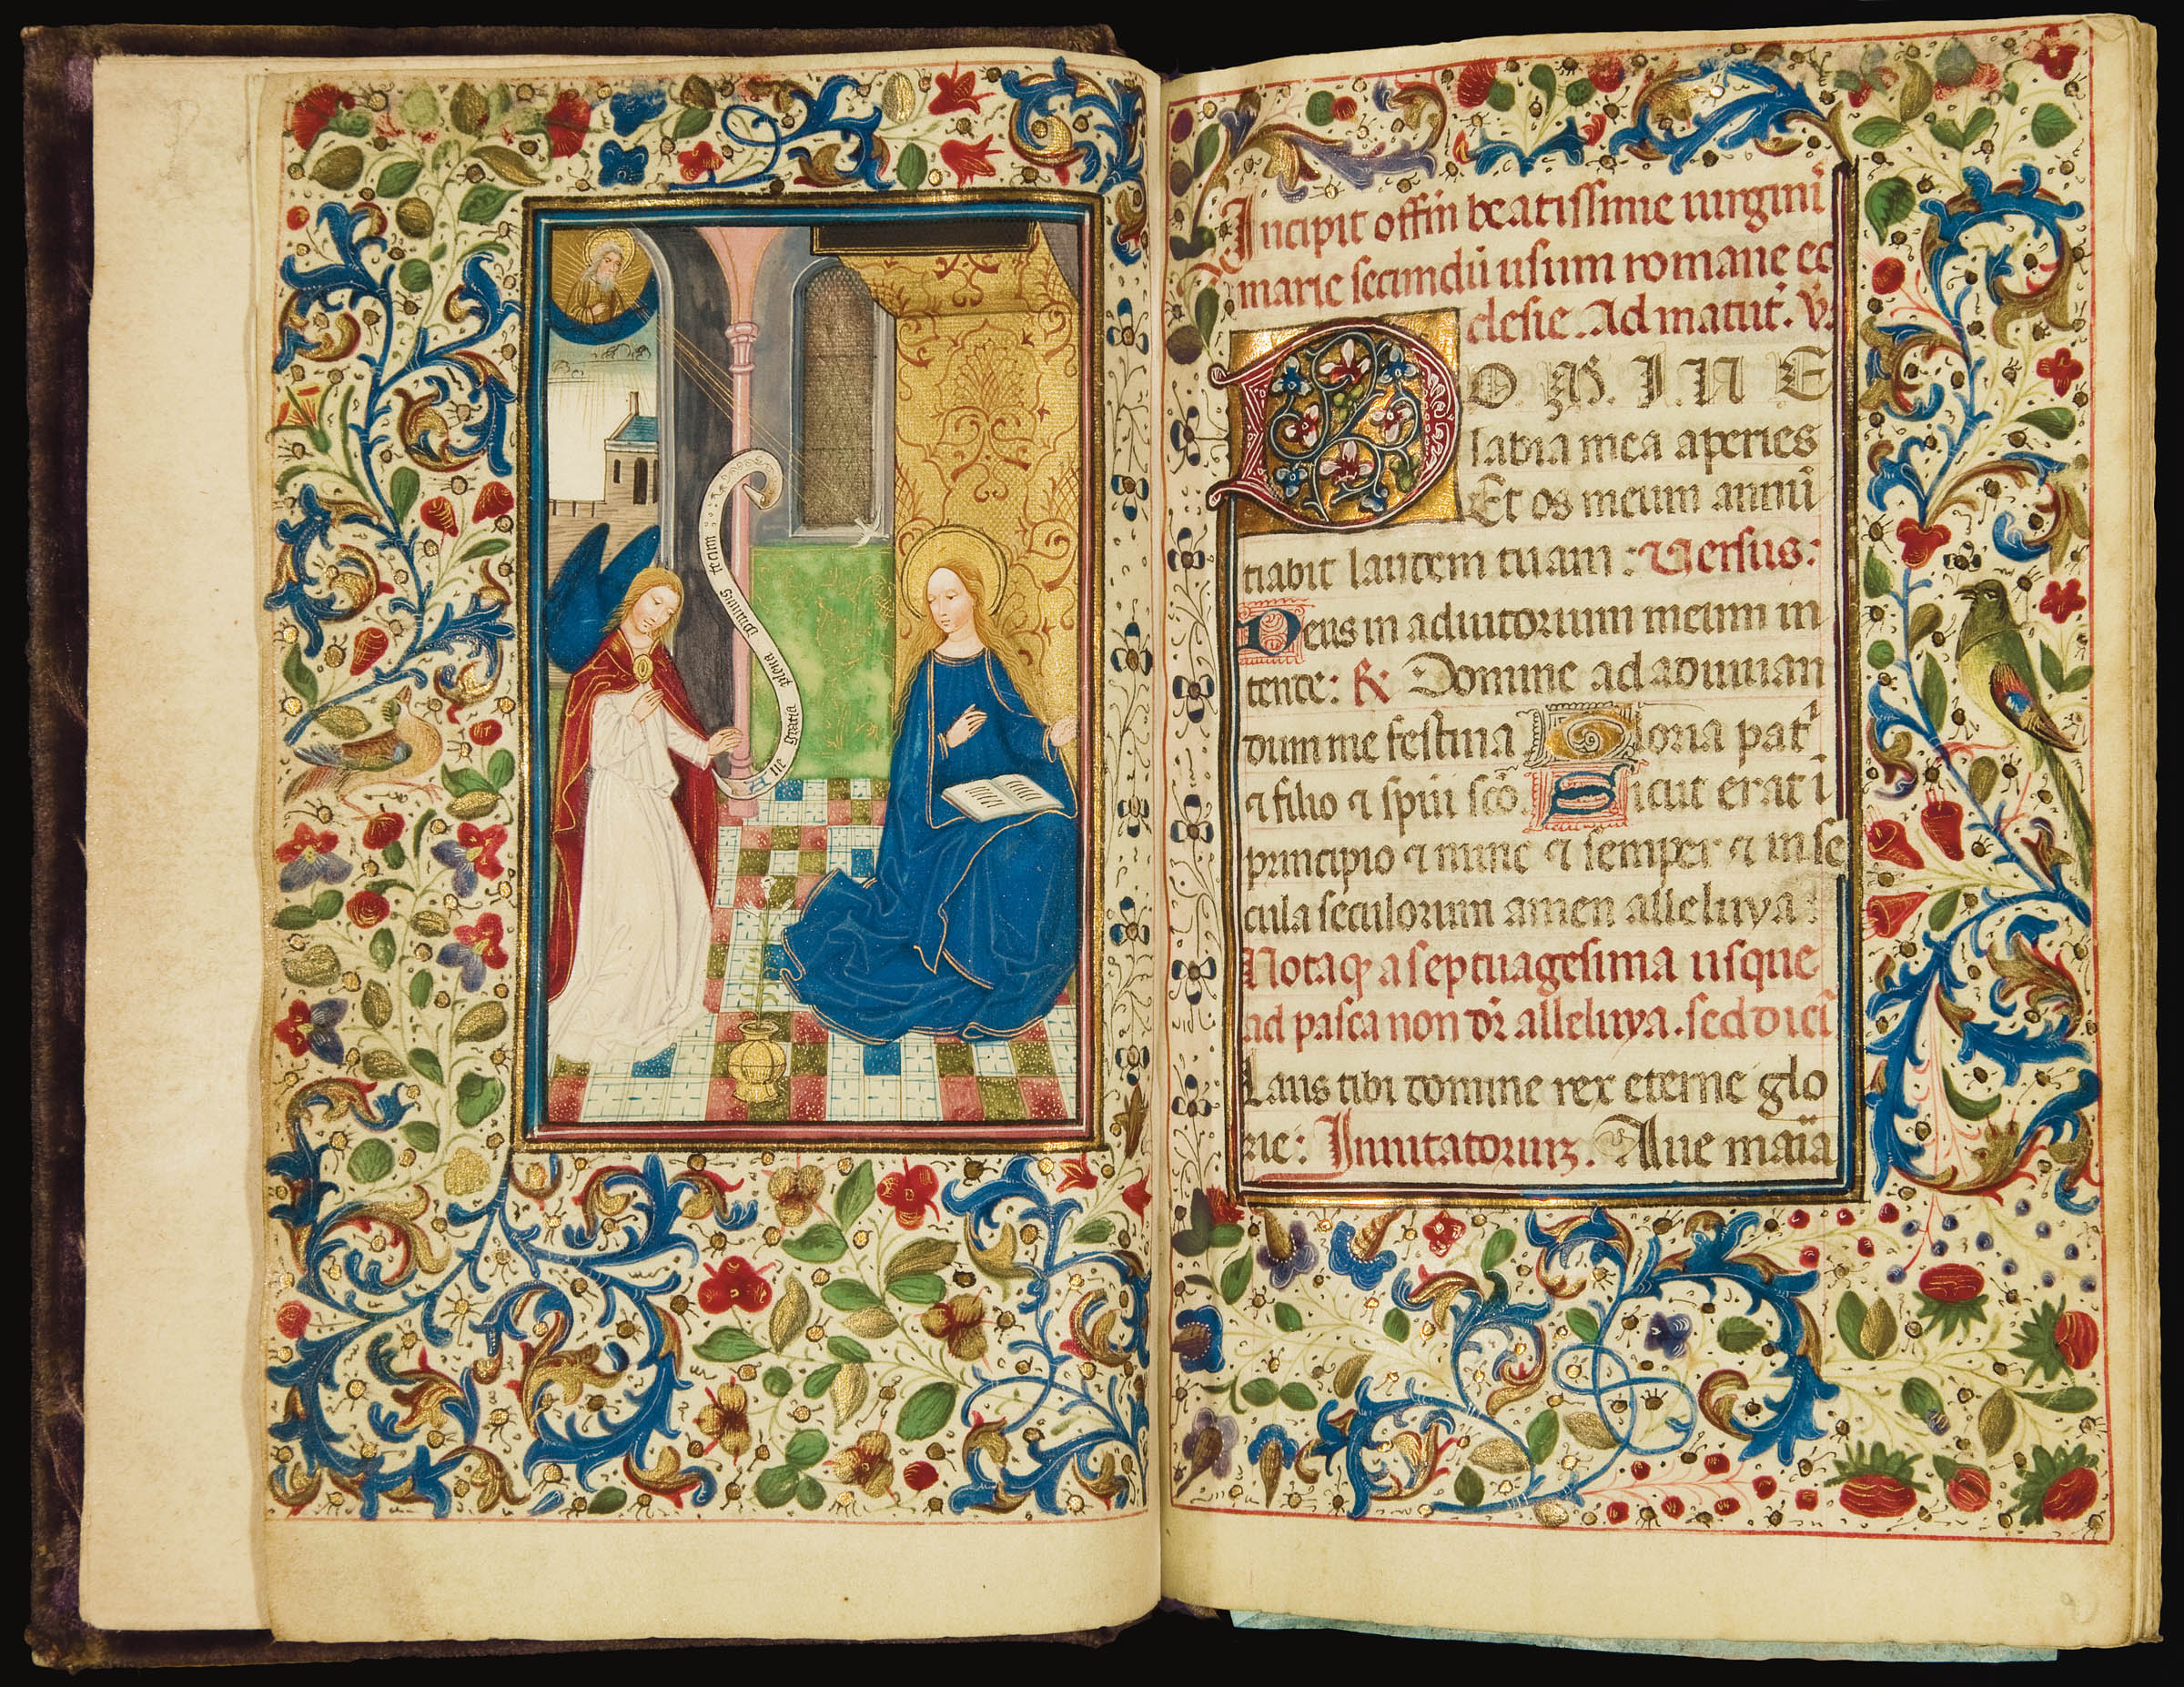 Aue gratia plena dominus tecum
Incipit offm beatissime uirginı̄
marie secundū usum romane ec
clesie. Ad matut̄. v̄.
D O. M. I. N E
labia mea aperies
Et os meum annū
tiabit laudem tuam: Versus:
Deus in adiutorium meum in
tende: R̷ Domine ad adiuuan
dum me festina Gloria pat̄
⁊ filio ⁊ spūi scō. Sicut erat ī
principio ⁊ nunc ⁊ semper ⁊ in se
cula seculorum amen alleluya:
Nota ꝙ a septuagesima usque
ad pasca non dr̄ alleluya. sed dicı̄
Laus tibi domine rex eterne glo
rie: Inuitatoriuꝫ. Aue maīa